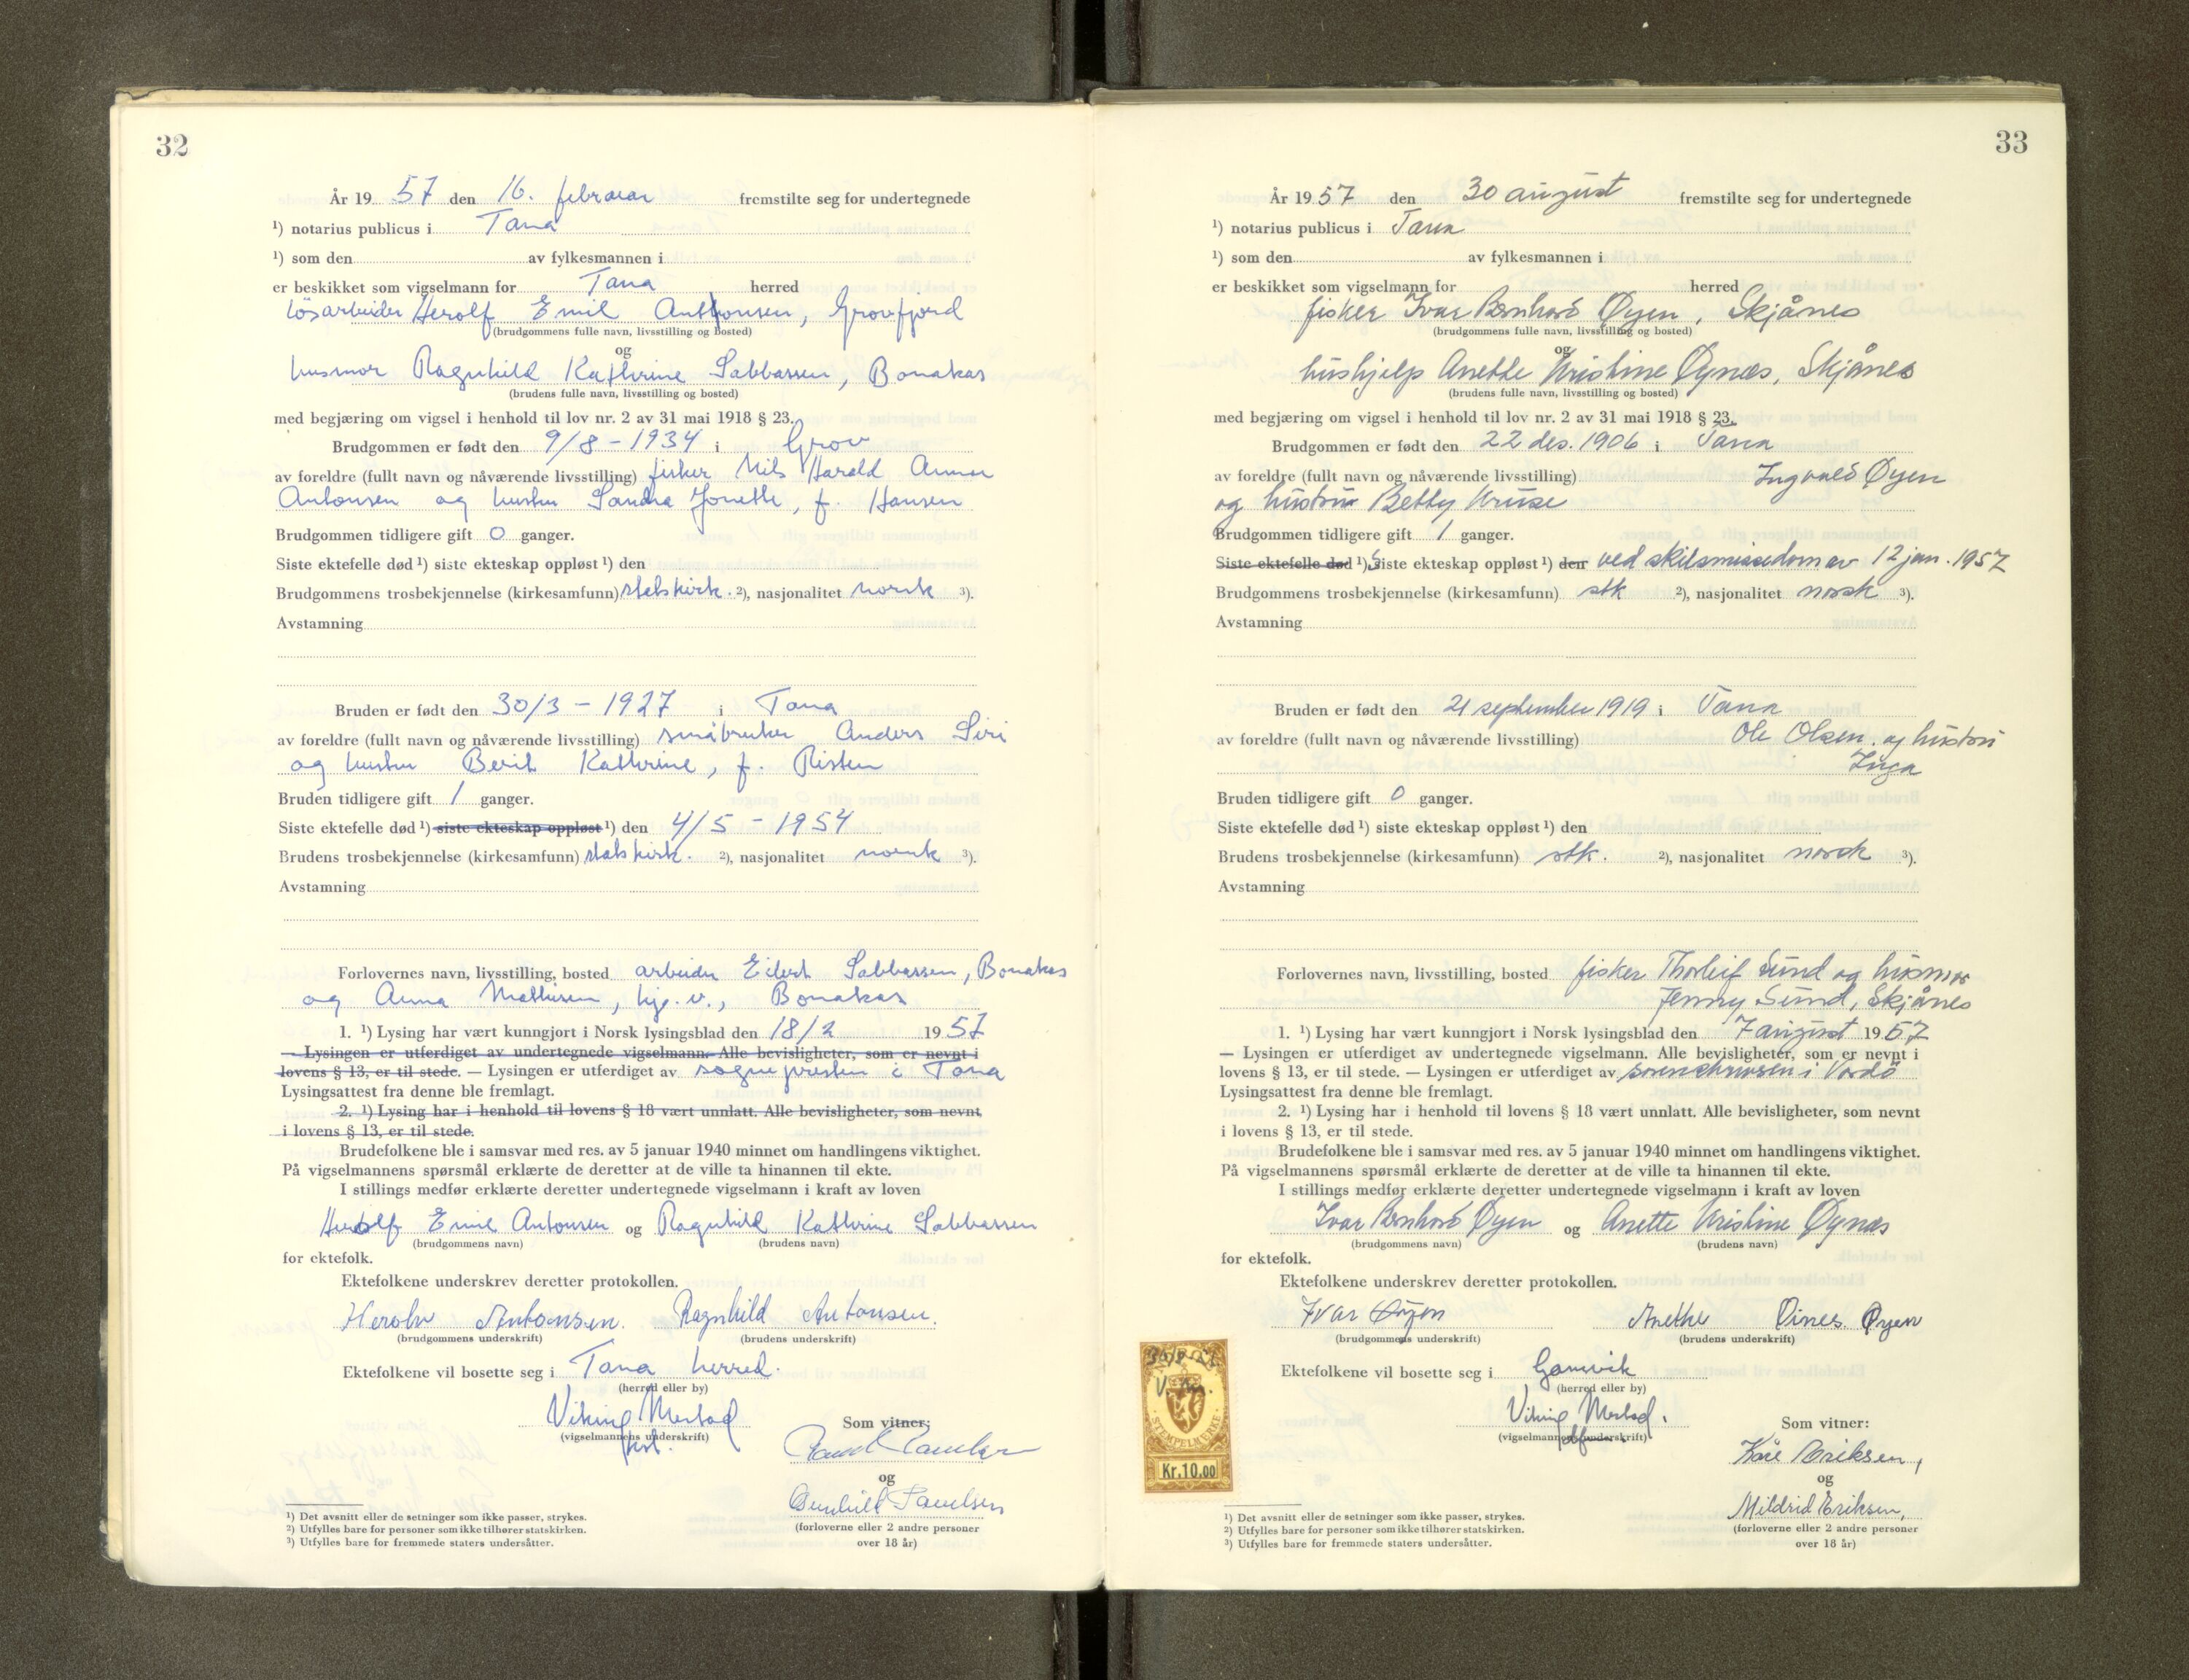 32
År 19 57 den 16. februar fremstilte seg for undertegnede
¹) notarius publicus i Tana
¹) som den av fylkesmannen i
er beskikket som vigselmann for Tana herred
løsarbeider Herolf Emil Anthonsen, Grovfjord
(brudgommens fulle navn, livsstilling og bosted)
og
husmor Ragnhild Kathrine Sabbassen, Bonakas
(brudens fulle navn, livsstilling og bosted)
med begjæring om vigsel i henhold til lov nr. 2 av 31 mai 1918 § 23.
Brudgommen er født den 9/8 - 1934 i Grov
av foreldre (fullt navn og nåværende livsstilling) fisker Nils Harald Annar
Antonsen og hustru Sandra Jonette, f. Hansen
Brudgommen tidligere gift 0 ganger.
Siste ektefelle død ¹) siste ekteskap oppløst ¹) den
Brudgommens trosbekjennelse (kirkesamfunn) statskirk. ²), nasjonalitet norsk ³).
Avstamning
Bruden er født den 30/3 - 1927 i Tana
av foreldre (fullt navn og nåværende livsstilling) småbruker Anders Siri
og hustru Berit Kathrine, f. Risten
Bruden tidligere gift 1 ganger.
Siste ektefelle død ¹) siste ekteskap oppløst ¹) den 4/5 - 1954
Brudens trosbekjennelse (kirkesamfunn) statskirk. ²), nasjonalitet norsk ³).
Avstamning
Forlovernes navn, livsstilling, bosted arbeider Eilert Sabbassen, Bonakas
og Anna Mathisen, hjp. v., Bonakas
1. ¹) Lysing har vært kunngjort i Norsk lysingsblad den 18/2 1957
— Lysingen er utferdiget av undertegnede vigselmann. Alle bevisligheter, som er nevnt i
lovens § 13, er til stede. — Lysingen er utferdiget av sognepresten i Tana
Lysingsattest fra denne ble fremlagt.
2. ¹) Lysing har i henhold til lovens § 18 vært unnlatt. Alle bevisligheter, som nevnt
i lovens § 13, er til stede.
Brudefolkene ble i samsvar med res. av 5 januar 1940 minnet om handlingens viktighet.
På vigselmannens spørsmål erklærte de deretter at de ville ta hinannen til ekte.
I stillings medfør erklærte deretter undertegnede vigselmann i kraft av loven
Herolf Emil Antonsen og Ragnhild Kathrine Sabbassen
(brudgommens navn) (brudens navn)
for ektefolk.
Ektefolkene underskrev deretter protokollen.
Herolv Antonsen. Ragnhild Antonsen.
(brudgommens underskrift) (brudens underskrift)
Ektefolkene vil bosette seg i Tana herred.
(herred eller by)
Viking Mestad
(vigselmannens underskrift)
Som vitner:
og
(forloverne eller 2 andre personer
over 18 år)
¹) Det avsnitt eller de setninger som ikke passer, strykes.
²) Utfylles bare for personer som ikke tilhører statskirken.
³) Utfylles bare for fremmede staters undersåtter.
33
År 19 57 den 30 august fremstilte seg for undertegnede
¹) notarius publicus i Tana
¹) som den av fylkesmannen i
er beskikket som vigselmann for herred
fisker Ivar Bernhard Øyen, Skjånes
(brudgommens fulle navn, livsstilling og bosted)
og
hushjelp Anette Kristine Øynæs, Skjånes
(brudens fulle navn, livsstilling og bosted)
med begjæring om vigsel i henhold til lov nr. 2 av 31 mai 1918 § 23.
Brudgommen er født den 22 des. 1906 i Tana
av foreldre (fullt navn og nåværende livsstilling) Ingvald Øyen
og hustru Betty Kruse
Brudgommen tidligere gift 1 ganger.
Siste ektefelle død ¹) Siste ekteskap oppløst ¹) den ved skilsmissedom av 12 jan. 1957
Brudgommens trosbekjennelse (kirkesamfunn) stk ²), nasjonalitet norsk ³).
Avstamning
Bruden er født den 21 september 1919 i Tana
av foreldre (fullt navn og nåværende livsstilling) Ole Olsen og hustru
Inga
Bruden tidligere gift 0 ganger.
Siste ektefelle død ¹) siste ekteskap oppløst ¹) den
Brudens trosbekjennelse (kirkesamfunn) stk. ²), nasjonalitet norsk ³).
Avstamning
Forlovernes navn, livsstilling, bosted fisker Thorleif Sund og husmor
Jenny Sund, Skjånes
1. ¹) Lysing har vært kunngjort i Norsk lysingsblad den 7 august 1957
— Lysingen er utferdiget av undertegnede vigselmann. Alle bevisligheter, som er nevnt i
lovens § 13, er til stede. — Lysingen er utferdiget av sorenskriveren i Vardø
Lysingsattest fra denne ble fremlagt.
2. ¹) Lysing har i henhold til lovens § 18 vært unnlatt. Alle bevisligheter, som nevnt
i lovens § 13, er til stede.
Brudefolkene ble i samsvar med res. av 5 januar 1940 minnet om handlingens viktighet.
På vigselmannens spørsmål erklærte de deretter at de ville ta hinannen til ekte.
I stillings medfør erklærte deretter undertegnede vigselmann i kraft av loven
Ivar Bernhard Øyen og Anette Kristine Øynæs
(brudgommens navn) (brudens navn)
for ektefolk.
Ektefolkene underskrev deretter protokollen.
Ivar Øyen Anethe Øines Øyen
(brudgommens underskrift) (brudens underskrift)
Ektefolkene vil bosette seg i Gamvik
(herred eller by)
Viking Mestad.
(vigselmannens underskrift)
Som vitner:
Kåre Eriksen,
og
Mildrid Eriksen,
(forloverne eller 2 andre personer
over 18 år)
STEMPELMERKE
Kr.10.00
¹) Det avsnitt eller de setninger som ikke passer, strykes.
²) Utfylles bare for personer som ikke tilhører statskirken.
³) Utfylles bare for fremmede staters undersåtter.